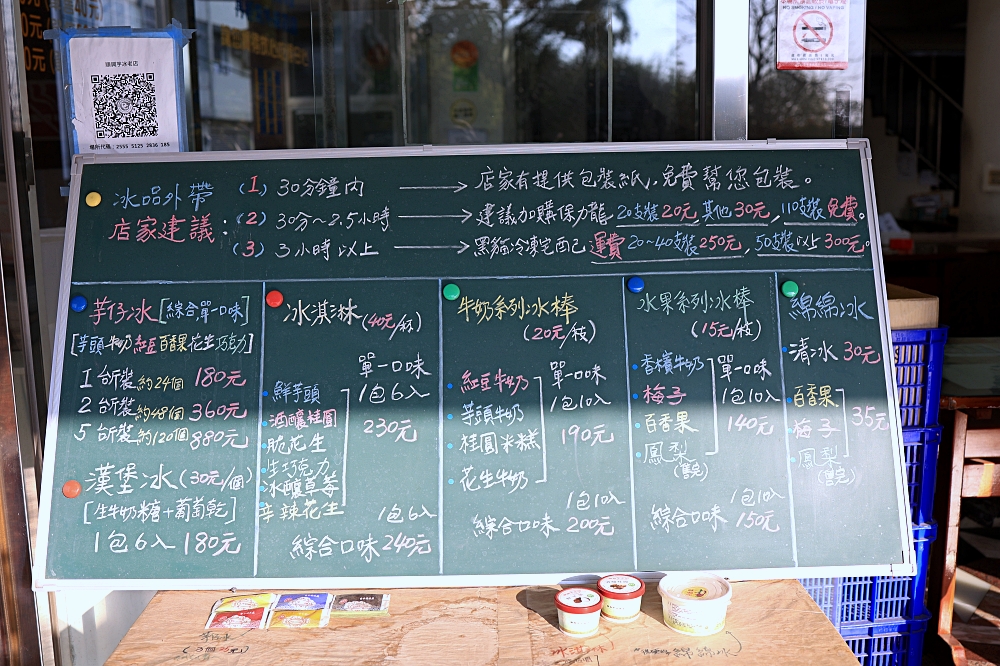 頭圍芋冰老店
場所代碼：2555 5125 2836 185
NO SMOKING / NO VAPING
冰品外帶
店家建議：
(1) 30分鐘內 → 店家有提供包裝紙，免費幫您包裝。
(2) 30分~2.5小時 → 建議加購保力龍 20支裝20元，其他30元，110支裝免費。
(3) 3小時以上 → 黑貓冷凍宅西己 運費 20~40支裝250元，50支裝以上300元。
芋仔冰[綜合單一口味]
[芋頭牛奶紅豆百香果花生巧克力]
1台斤裝約24個 180元
2台斤裝約48個 360元
5台斤裝約120個 880元
漢堡冰(30元/個)
[生牛奶糖+葡萄乾]
1包6入180元
冰淇淋(40元/杯)
單一口味
1包6入
230元
鮮芋頭
酒釀桂圓
脆花生
生巧克力
冰釀草莓
辛辣花生
1包6入
綜合口味240元
牛奶系列冰棒
(20元/枝)
單一口味
1包10入
190元
紅豆牛奶
芋頭牛奶
桂圓米糕
花生牛奶
1包10入
綜合口味200元
水果系列冰棒
(15元/枝)
單一口味
1包10入
140元
香檳牛奶
梅子
百香果
鳳梨
(售完)
1包10入
綜合口味150元
綿綿冰
清冰30元
百香果
梅子
鳳梨
(售完)
35元